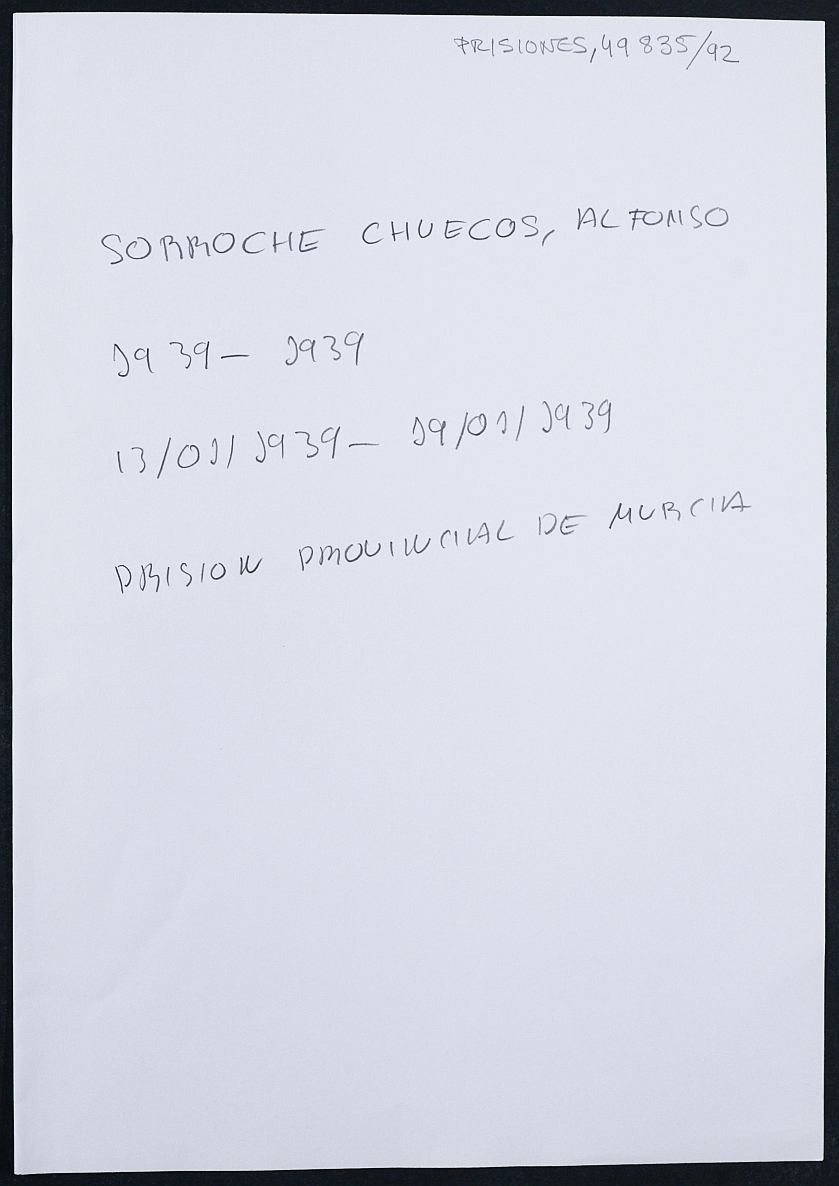 PRISIONES, 49835/92
SORROCHE CHUECOS, ALFONSO
1939 - 1939
13/01/1939 - 19/01/1939
PRISION PROVINCIAL DE MURCIA